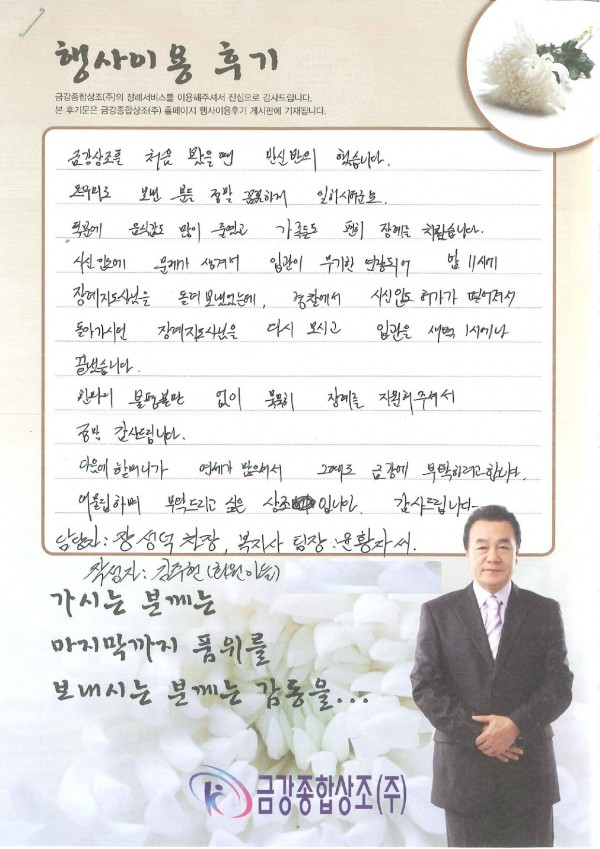 행사이용 후기
금강종합상조(주)의 장례서비스를 이용해주셔서 진심으로 감사드립니다.
본 후기문은 금강종합상조(주) 홈페이지 행사이용후기 게시판에 기재됩니다.
금강상조를 처음 봤을땐 반신반의 했습니다.
보내 분들 정말 꼼꼼하게
덕분에 음식값도 많이 줄였고 가족들도 편히 장례를 치뤘습니다.
시신 인도에 문제가 생겨서 입관이 무기한 연장되어 밤 11시에
장례지도사님을 돌려 보냈었는데, 경찰에서 시신인도 허가가 떨어져서
돌아가시던 장례지도사님을 다시 모시고 입관을 새벽 1시에나
끝냈습니다.
한마디 불평불만 없이 묵묵히 장례를 지원해주셔서
감사드립니다.
다음에 할머니가 연세가 많으셔서 그때도 금강에 부탁하려고합니다.
부탁드리고 싶은 상조 입니다. 감사드립니다~
담당자: 장성덕 찬장, 복지사 팀장: 윤황자씨.
작성자: 김주현 (회원이들)
가시는 분께는
마지막까지 품위를
보내시는 분께는 감동을...
금강종합상조(주)